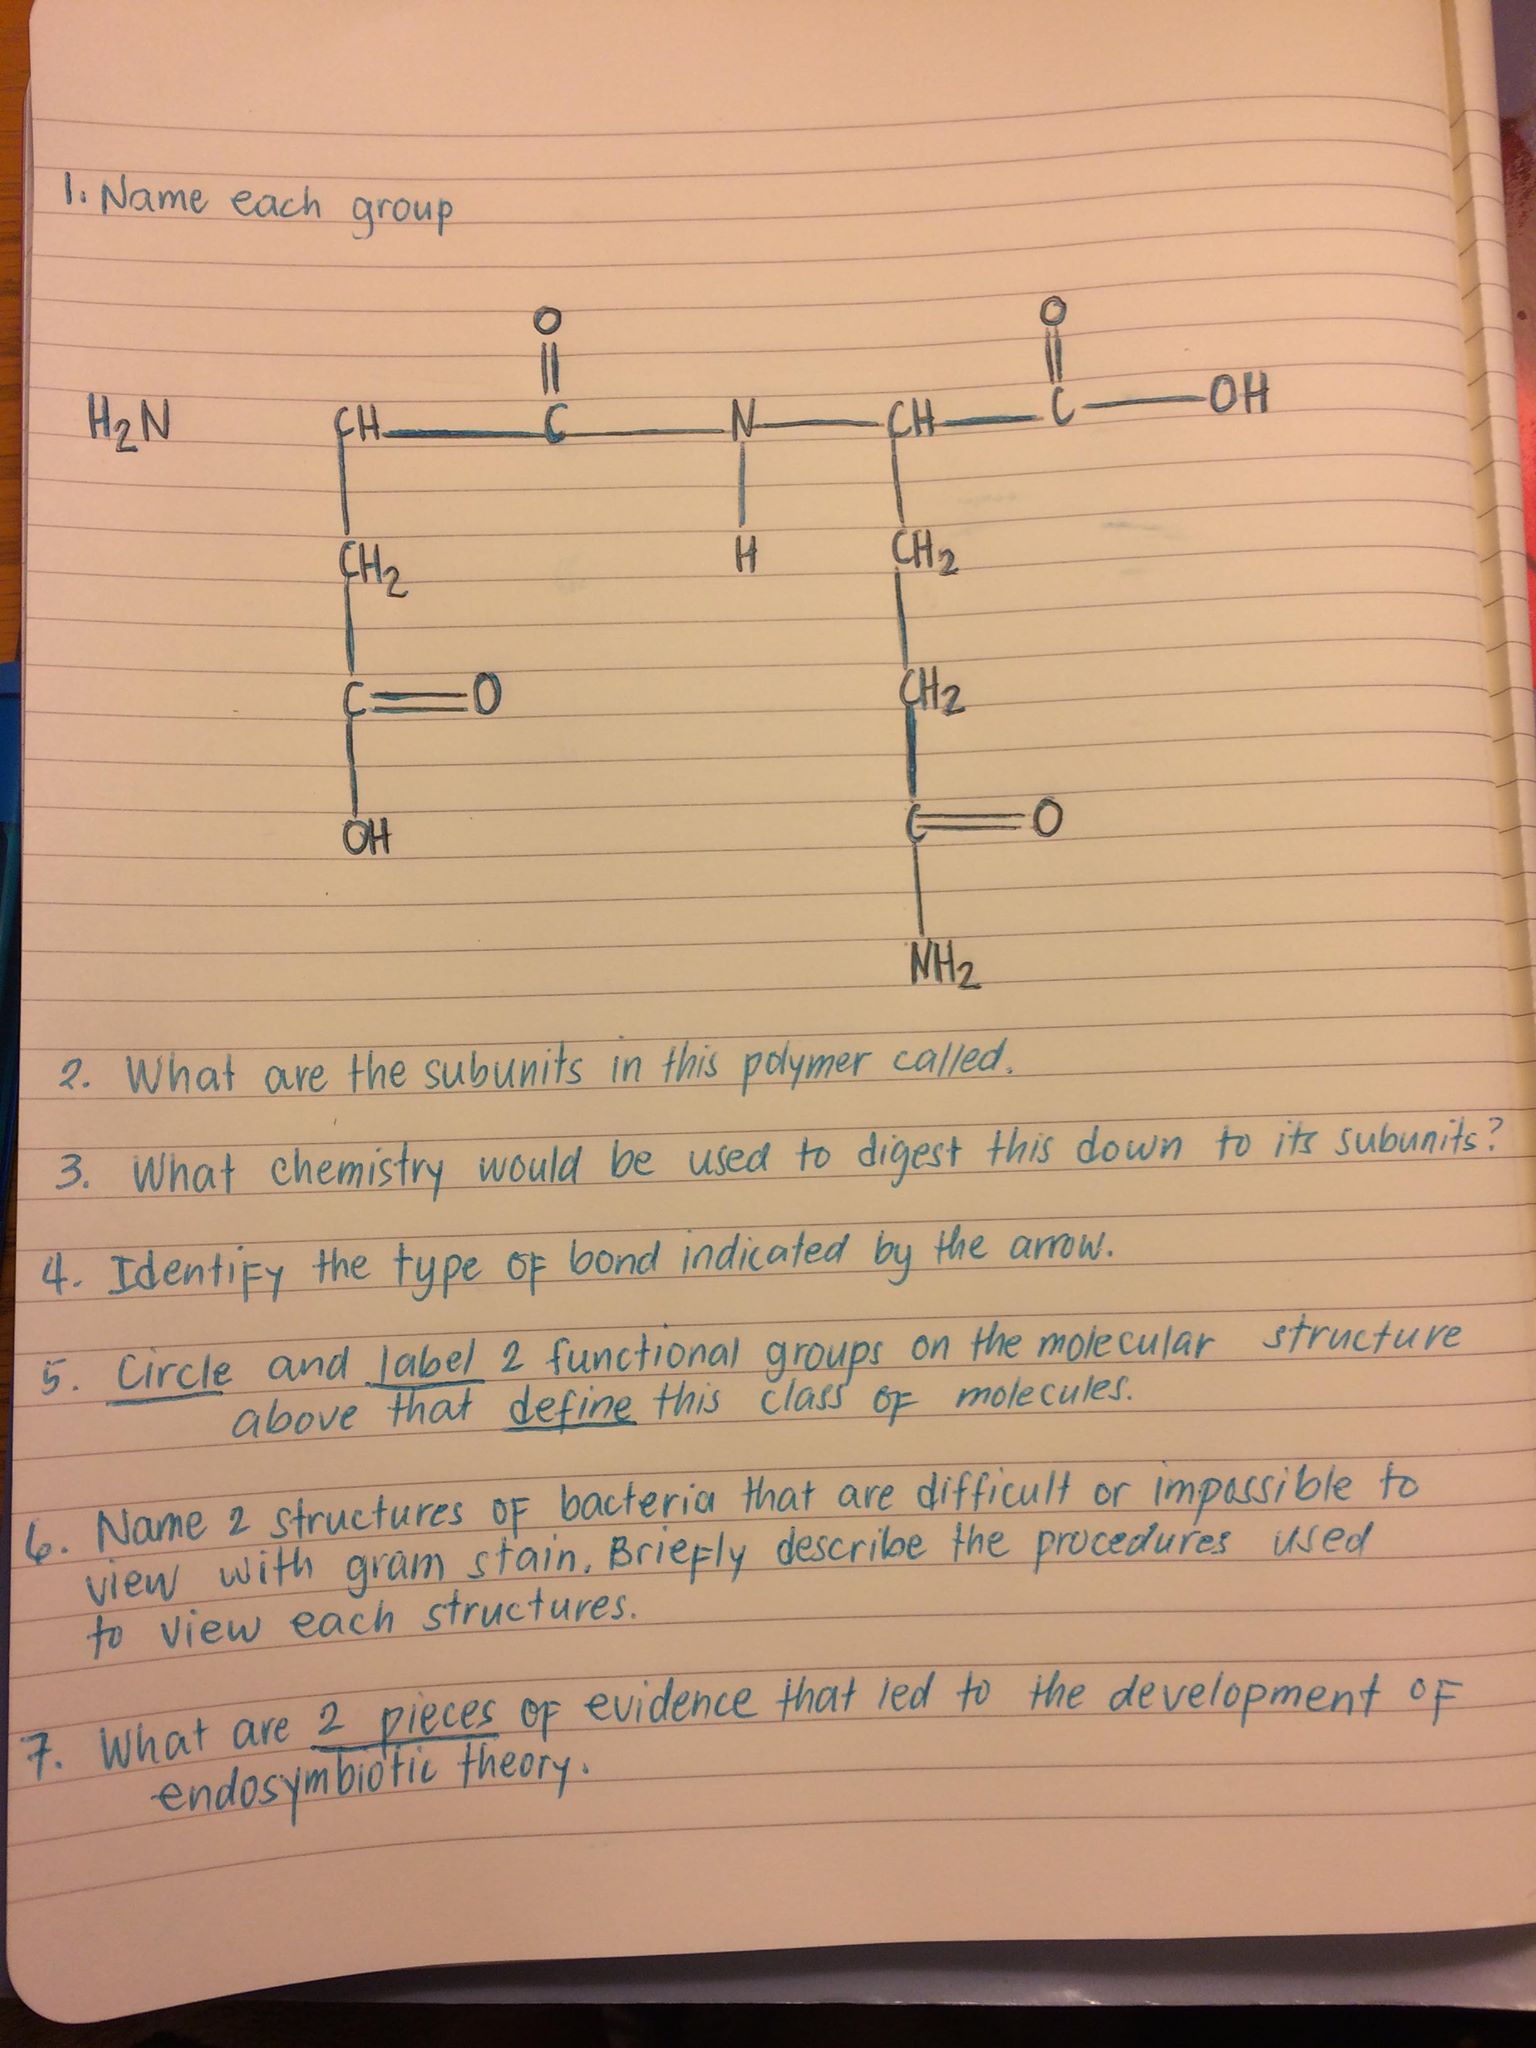 1. Name each group
O O
H2N CH C N CH C OH
CH2 H CH2
C O CH2
OH C O
NH2
2. What are the subunits in this polymer called.
3. What chemistry would be used to digest this down to its subunits?
4. Identify the type of bond indicated by the arrow.
5. Circle and label 2 functional groups on the molecular structure
above that define this class of molecules.
6. Name 2 structures of bacteria that are difficult or impossible to
view with gram stain. Briefly describe the procedures used
to view each structures.
7. What are 2 pieces of evidence that led to the development of
endosymbiotic theory.